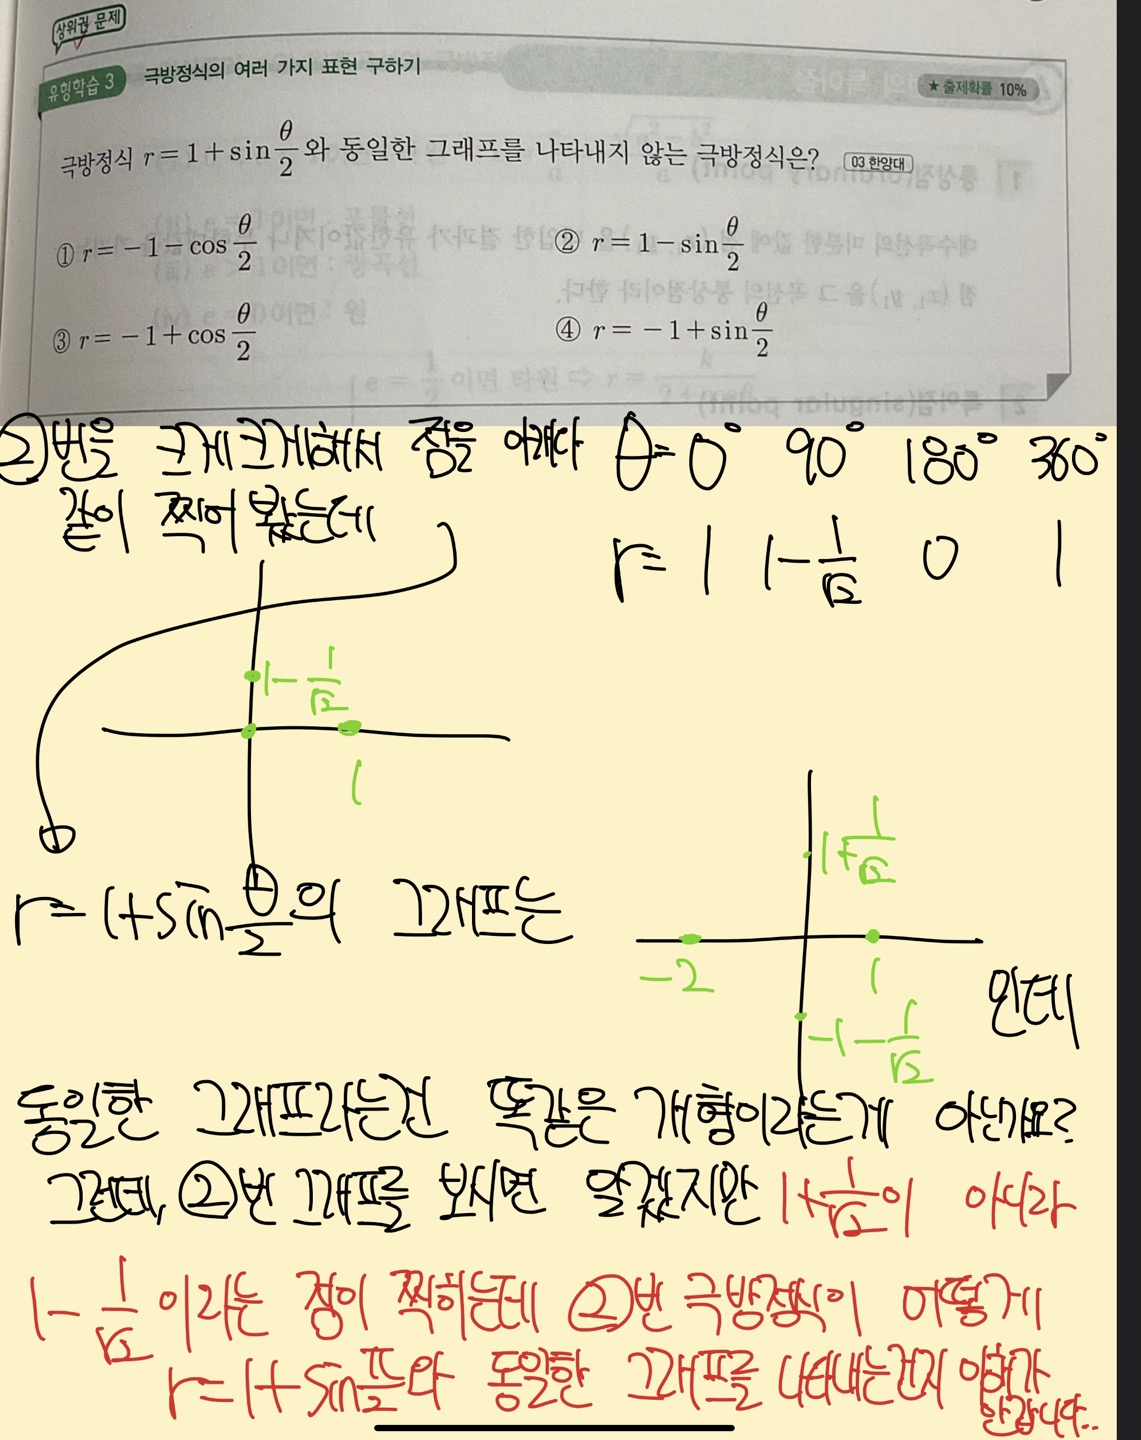 상위권 문제
유형학습 3 극방정식의 여러 가지 표현 구하기 ★ 출제확률 10%
극방정식 r=1+sin θ/2 와 동일한 그래프를 나타내지 않는 극방정식은? 03 한양대
① r=-1-cos θ/2 ② r=1-sin θ/2
③ r=-1+cos θ/2 ④ r=-1+sin θ/2
②번을 크게크게해서 점을 아래다 θ=0° 90° 180° 360°
같이 찍어 봤는데
r= 1 1-1/√2 0 1
1-1/√2
1
1+1/√2
r=1+sin θ/2의 그래프는
-2 1
-1-1/√2
인데
동일한 그래프라는건 똑같은 개형이라는게 아닌가요?
그런데, ②번 그래프를 보시면 알겠지만 1+1/√2이 아니라
1-1/√2이라는 점이 찍히는데 ②번 극방정식이 어떻게
r=1+sin π/2와 동일한 그래프를 나타내는건지 이해가
안갑니다..